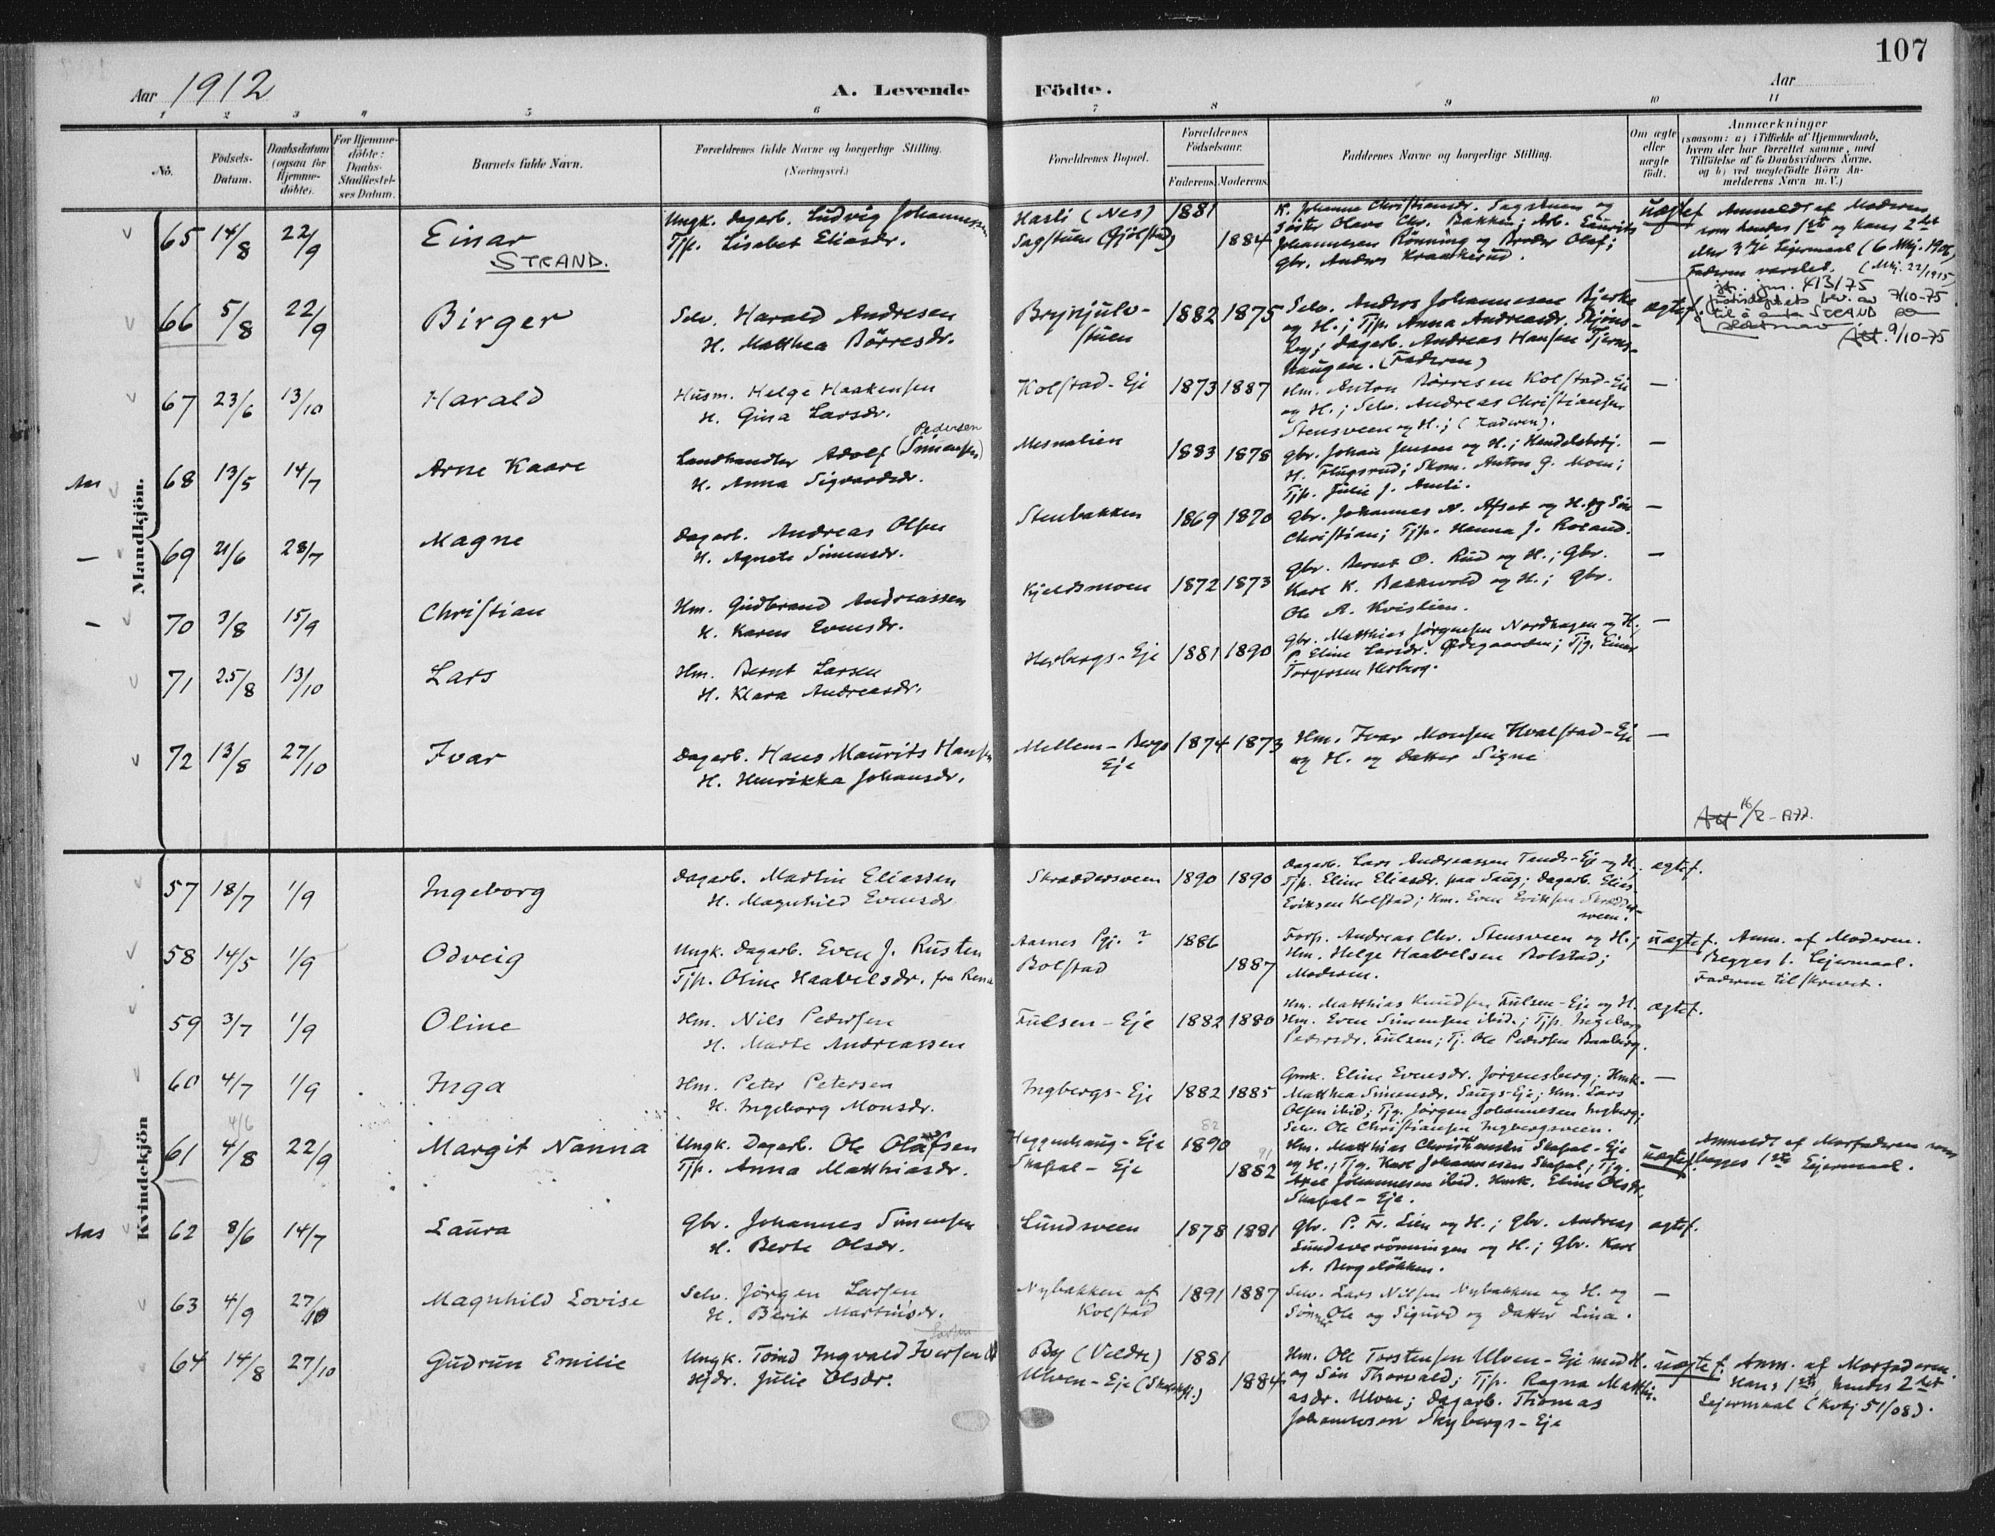 107
Aar 1912
A. Levende Födte.
Aar
1 2 3 4 5 6 7 8 9 10 11
No.
Födsels-Datum.
Daabsdatum (ogsaa for Hjemme-döbte).
For Hjemme-döbte: Daabs-Stadfæstel-ses Datum.
Barnets fulde Navn.
Forældrenes fulde Navne og borgerlige Stilling.
(Næringsvei.)
Forældrenes Bopæl.
Forældrenes Födselsaar.
Faderens. Moderens.
Faddernes Navne og borgerlige Stilling.
Om ægte eller uægte födt.
Anmærkninger
(saasom: a) i Tilfælde af Hjemmedaab, hvem der har forrettet samme, med Tilföielse af to Daabsvidners Navne, og b) ved uægtefödte Börn An-melderens Navn m. V.)
Mandkjön.
65 14/8 22/9 Einar STRAND.
Ungk. Dagarb. Ludvig Johannessen
Tjp. Lisabet Eliasdr.
Hasli (Nes) 1881
Sagstuen (Gjölstad) 1884
K. Johanne Christiansdr. Sagstuen og
Söster Olava Chr. Bakken; Arb. Laurits
Johannesen Rönning og Broder Olaf;
gbr. Anders Kraakerud.
uægtef. Anmeldt af Moderen
som hendes 1ste og hans 2det
eller 3die Lejermaal (6 Mkj. 1906,
Mkj. 22/1915)
Faderen varslet.
jfr. jnr. 413/75
Justisdeptets bev. av 7/10-75
til å anta STRAND som
slektsnavn
Att. 9/10-75
66 5/8 22/9 Birger
Selv. Harald Andresen
H. Matthea Börresdr.
Brynjulv-stuen 1882 1875
Selv. Anders Johannesen Bjerke
og H.; Tjp. Anna Andreasdr. Skjöns-
by; Dagarb. Andreas Hansen Tjerns-
haugen. (Faderen)
ægtef.
67 23/6 13/10 Harald
Husm. Helge Haakensen
H. Gina Larsdr.
Kolstad-Eje 1873 1887
Hm. Anton Börresen Kolstad-Eie
og H.; Selv. Andreas Christiansen
Stensveen og H.; (Faderen).
—
Aas 68 13/5 14/7 Arne Kaare
Pedersen
Landhandler Adolf (Simensen)
H. Anna Sigvardsdr.
Mesnalien 1883 1878
gbr. Johan Jensen og H.; Handelsbetj.
H. Flugsrud; Skom. Anton G. Moen;
Tjp. Julie J. Aasli.
—
— 69 21/6 28/7 Magne
Dagarb. Andreas Olsen
H. Agnete Simensdr.
Stenbakken 1869 1870
gbr. Johannes N. Afset og H. og Sön
Christian; Tjp. Hanna J. Roland.
—
— 70 3/8 15/9 Christian
Hm. Gudbrand Andreassen
H. Karen Evensdr.
Kjeldsmoen 1872 1873
gbr. Bernt O. Rud og H.; gbr.
Karl K. Bakkevold og H.; gbr.
Ole A. Kvislien.
—
71 25/8 13/10 Lars
Hm. Bernt Larsen
H. Klara Andreasdr.
Herbergs-Eje 1881 1890
gbr. Matthias Jörgensen Nordhagen og H.;
P. Eline Larsdr. Ödegaarden; Tjg. Einar
Torgersen Herberg.
—
72 13/8 27/10 Ivar
Dagarb. Hans Maurits Hansen
H. Henrikka Johansdr.
Mellem-Bergs Eje 1874 1873
Hm. Ivar Monsen Hvalstad-Eje
og H. og Datter Signe
—
Att 16/2-1977.
Kvindekjön
57 18/7 1/9 Ingeborg
Dagarb. Martin Eliassen
H. Magnhild Evensdr.
Skræddersveen 1890 1890
Dagarb. Lars Andreassen Tande-Eje og H.;
Tjp. Eline Eliasdr. paa Saug; Dagarb. Elias
Eriksen Kolstad; Hm. Even Eriksen Skrædder-
sveen.
ægtef.
58 14/5 1/9 Odveig
Ungk. Dagarb. Even J. Rusten
Tjp. Oline Haavelsdr. fra Rena
Aarnes Pgj. ? 1886
Bolstad 1887
Forp. Andreas Chr. Stensveen og H.;
Hm. Helge Haavelsen Bolstad;
Moderen.
uægtef. Anm. af Moderen.
Begges 1. Lejermaal.
Faderen tilskrevet.
59 3/7 1/9 Oline
Hm. Nils Pedersen
H. Marte Andreassen
Fulsen-Eje 1882 1880
Hm. Matthias Knudsen Fulsen-Eje og H.
Hm. Even Simensen ibid.; Tjp. Ingeborg
Pedersdr. Fulsen; Tj. Ole Pedersen Baaberg.
ægtef.
60 4/7 1/9 Inga
Hm. Peter Petersen
H. Ingeborg Monsdr.
Ingbergs-Eje 1882 1885
Gmk. Eline Evensdr. Jörgensberg; Hmk.
Matthea Simensdr. Saugs-Eje; Hm. Lars
Olsen ibid; Tjg. Jörgen Johannesen Ingberg;
Selv. Ole Christiansen Ingbergsveen.
—
4/6
61 4/8 22/9 Margit Nanna
Ungk. Dagarb. Ole Olafsen
Tjp. Anna Matthiasdr.
Heggenhaug-Eje 1890 82
Skafal-Eje 1882 91
Hm. Matthias Christiansen Skafal-Eje
og H.; Tjg. Karl Johannesen Skafal; Tjg.
Axel Johannesen ibid. Hmk. Eline Olsdr.
Skafal-Eje.
uægtef. Anmeldt af Morfaderen som
begges 1ste Lejermaal.
Aas 62 8/6 14/7 Laura
Gbr. Johannes Simensen
H. Berte Olsdr.
Lundsveen 1878 1881
gbr. P. Fr. Lien og H.; gbr. Andreas
Lundsverönningen og H.; Gbr. Karl
A. Bergelökken.
ægtef.
63 4/9 27/10 Magnhild Lovise
Selv. Jörgen Larsen
H. Berit Martinsdr.
Nybakken af Kolstad 1891 1887
Selv. Lars Nilsen Nybakken og H. og
Sönner Ole og Sigurd og Datter Lina.
—
64 14/8 27/10 Gudrun Emilie
Ungk. Tömd Ingvald Iversen
Hjdr. Julie Olsdr.
By (Veldre) 1881
Ulven-Eje 1884
Hm. Ole Torstensen Ulven-Eje med H.
og Sön Thorvald; Tjp. Ragna Matthi-
asdr. Ulven; Dagarb. Thomas
Johannesen Skybergs-Eje
uægtef. Anm. af Morfaderen.
Hans 1ste, hendes 2det
Lejermaal (Kvkj 51/08).